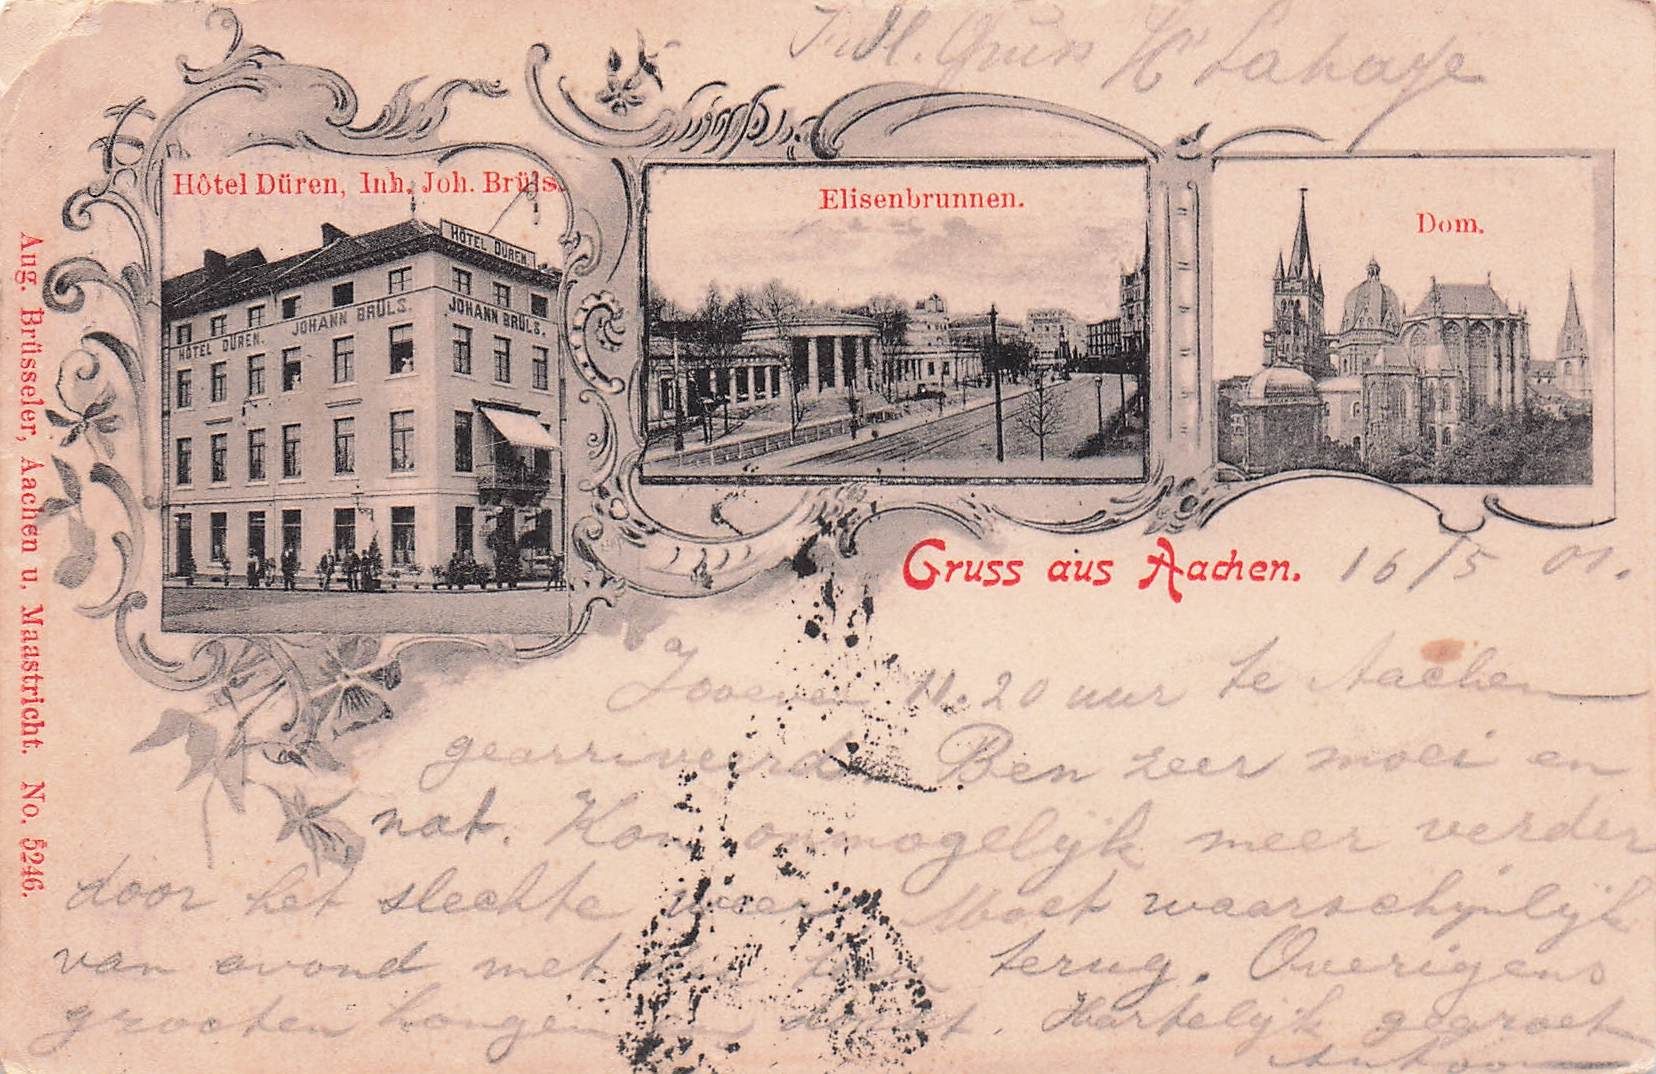 Hr Lahaye
Hôtel Düren, Inh. Joh. Brüls.
HOTEL DÜREN.
HÔTEL DÜREN.
JOHANN BRÜLS.
JOHANN BRÜLS.
Elisenbrunnen.
Dom.
Gruss aus Aachen.
16/5 01.
Zooeven 11.20 uur te Aachen
gearriveerd. Ben zeer moei en
nat. Kon onmogelijk meer verder
door het slechte weer. Moet waarschijnlijk
van avond met den trein terug. Overigens
grooten honger en dorst. Hartelijk gegroet
Antoon
Aug. Brüsseler, Aachen u. Maastricht. No. 5246.